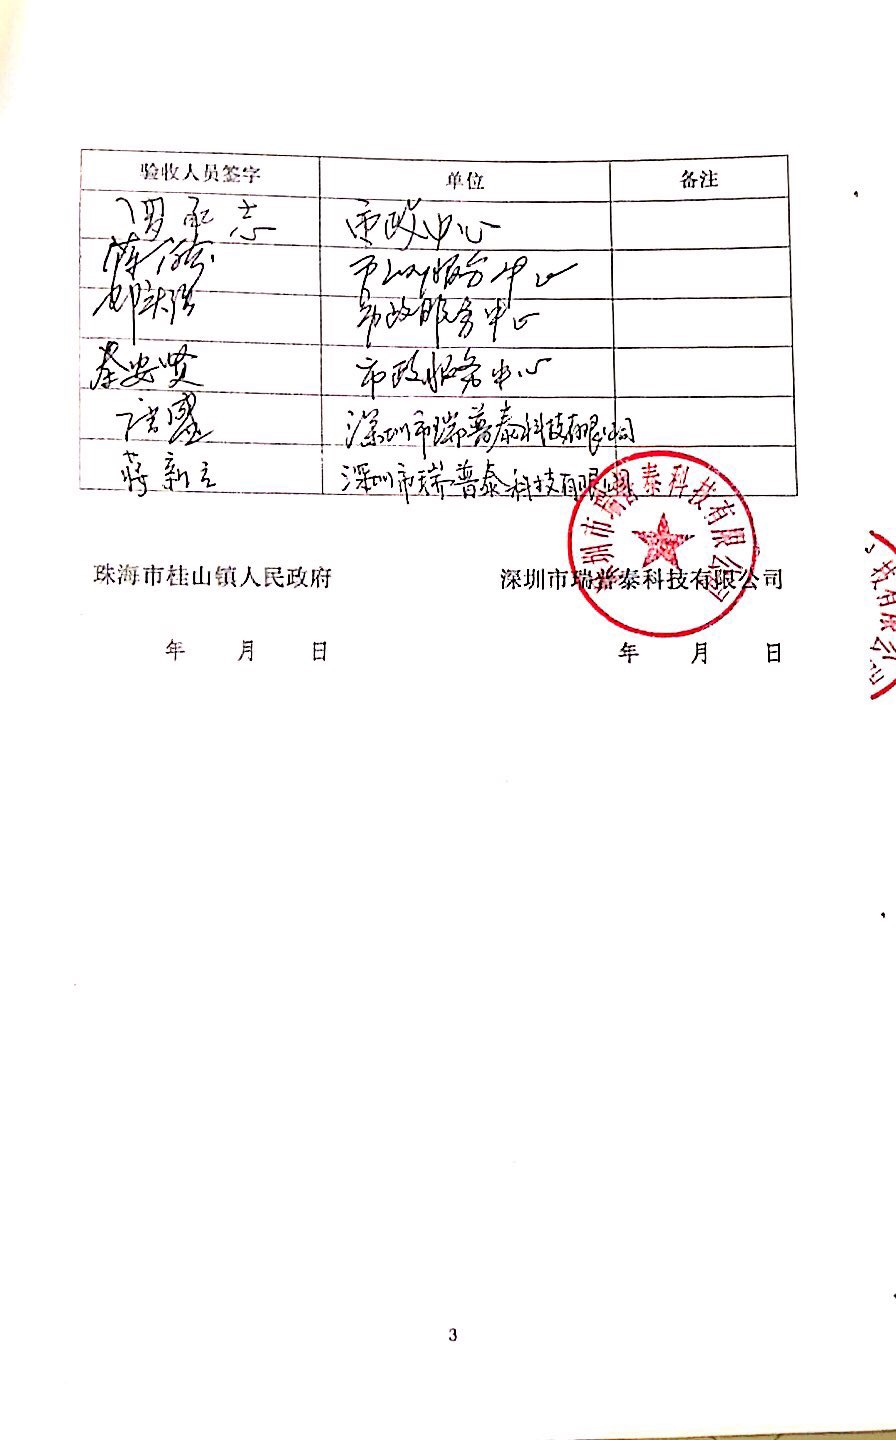 验收人员签字 单位 备注
市政中心
市政服务中心
市政服务中心
秦安贤 市政服务中心
唐盛 深圳市瑞普泰科技有限公司
蒋新立 深圳市瑞普泰科技有限公司
深圳市瑞普泰科技有限公司
珠海市桂山镇人民政府 深圳市瑞普泰科技有限公司
技有限公司
年 月 日 年 月 日
3